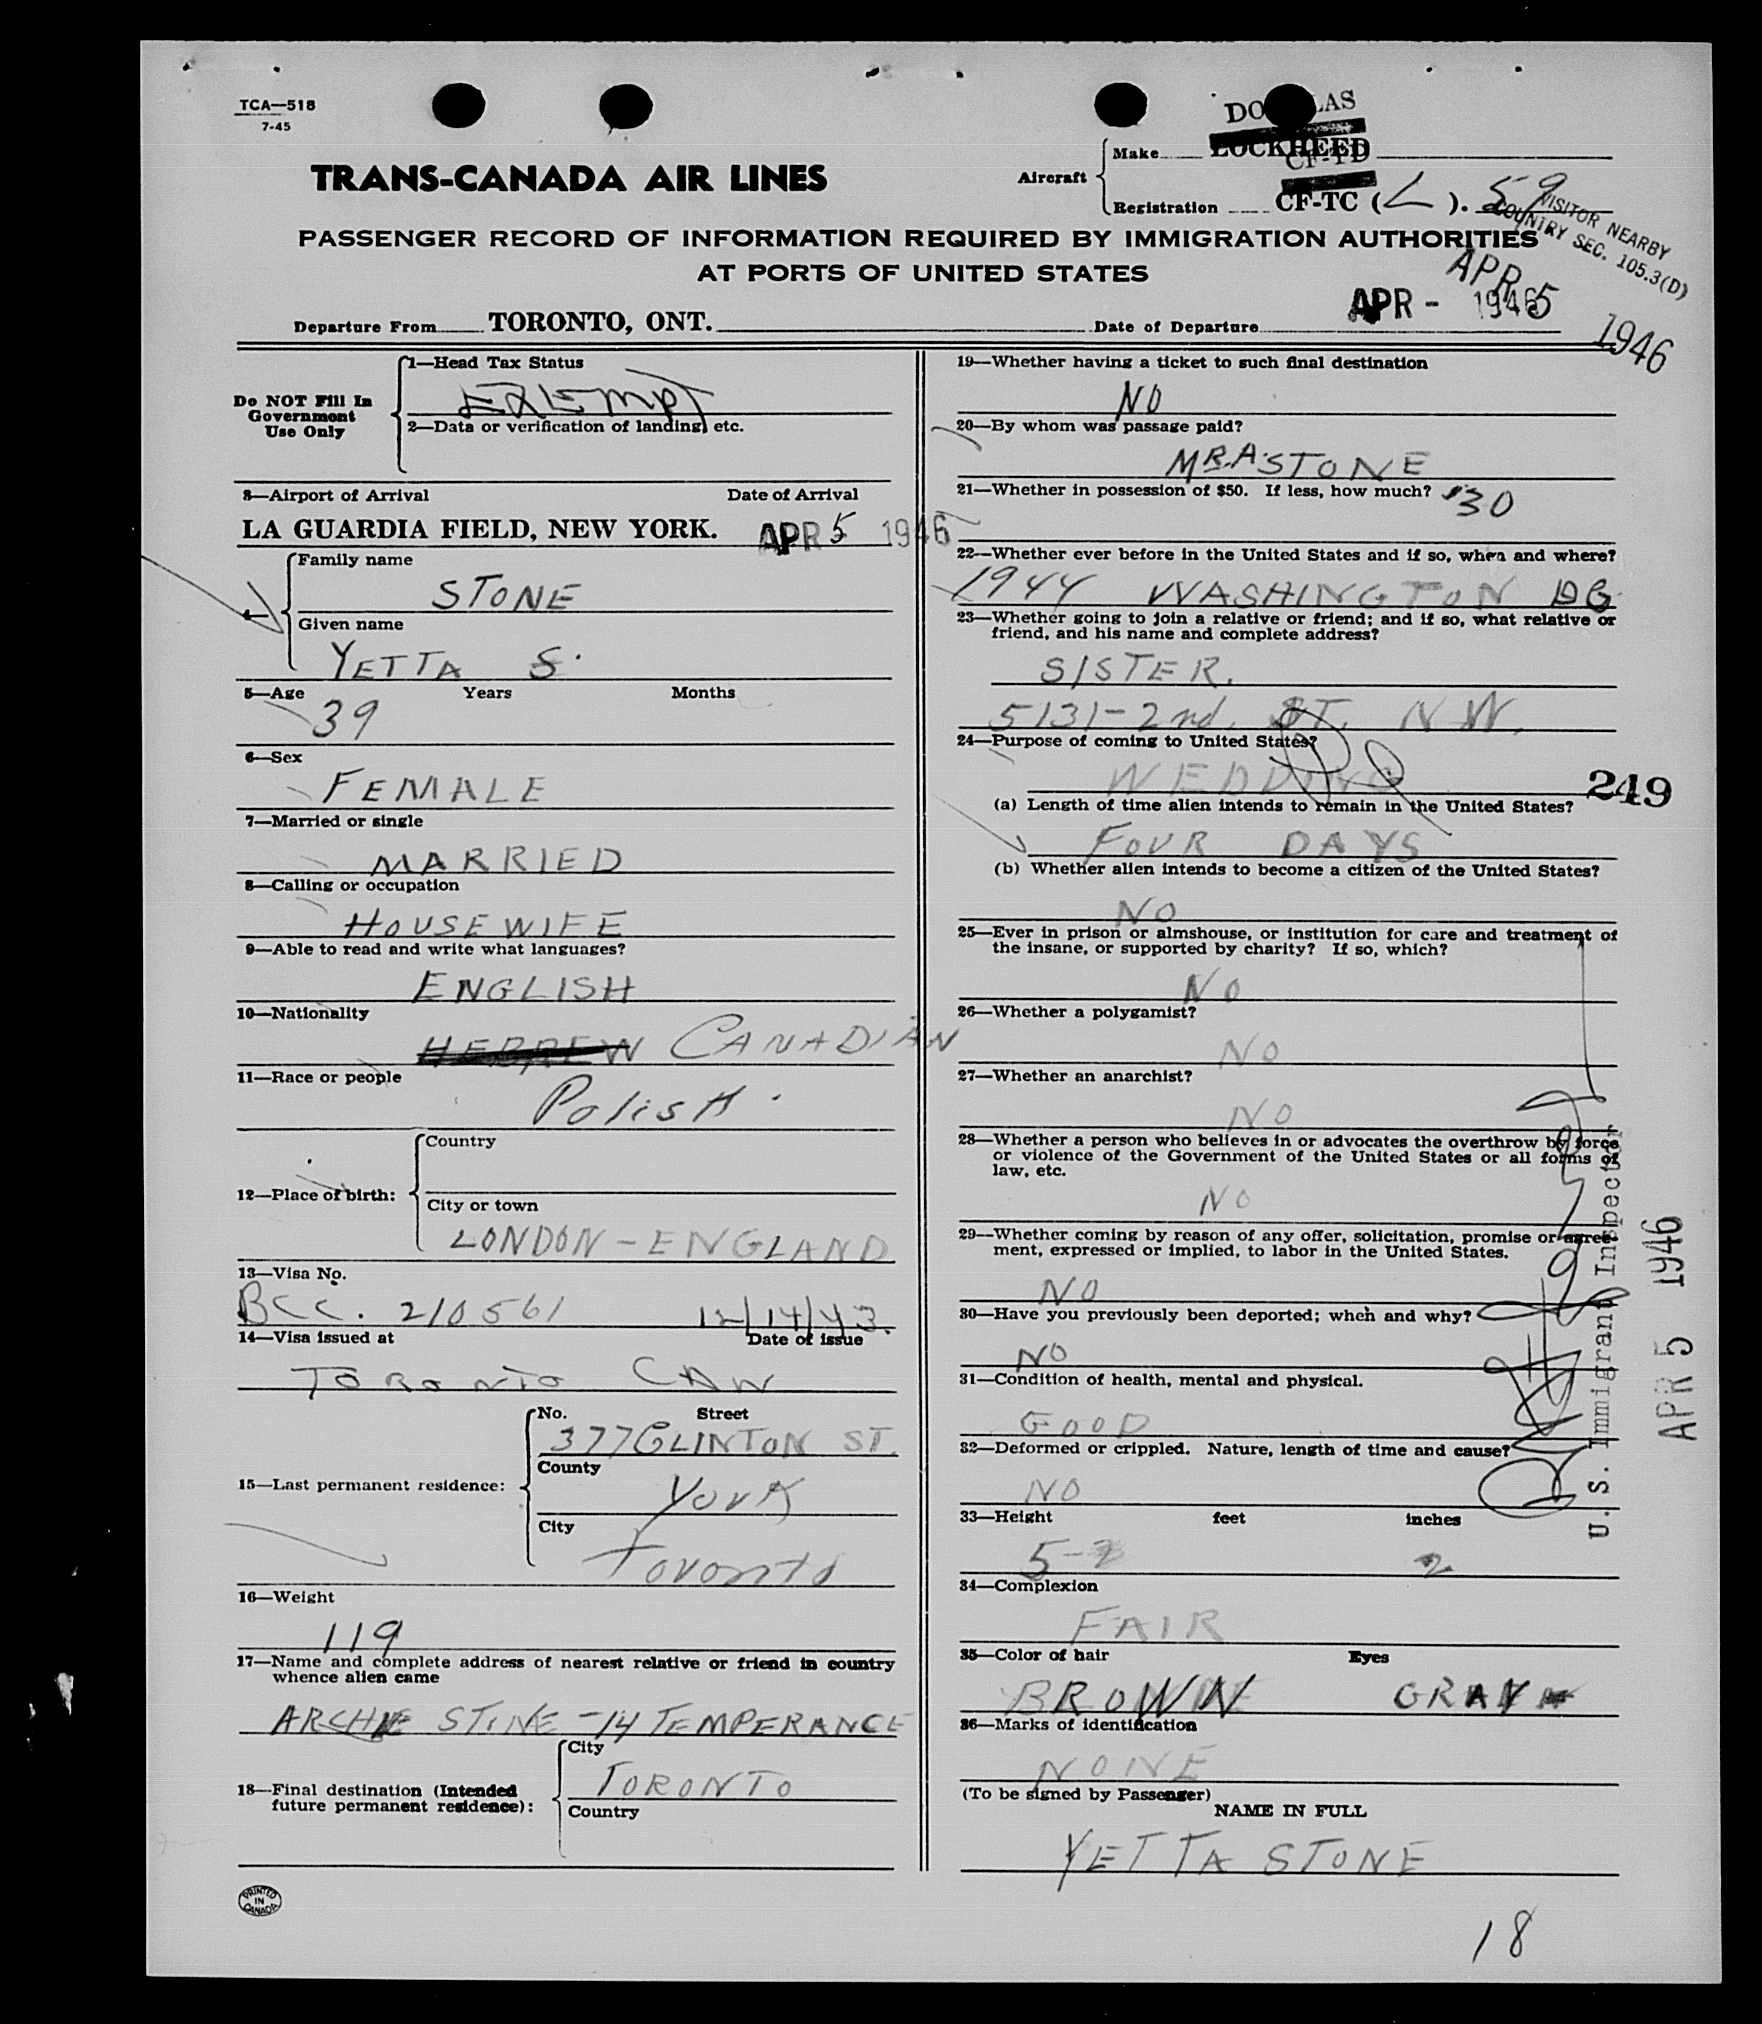 TCA—518
7-45
DOUGLAS
Aircraft
Make LOCKHEED
CF-TD
Registration CF-TC (L). 59
TRANS-CANADA AIR LINES
VISITOR NEARBY
COUNTRY SEC. 105.3(D)
APR 5 1946
PASSENGER RECORD OF INFORMATION REQUIRED BY IMMIGRATION AUTHORITIES
AT PORTS OF UNITED STATES
Departure From TORONTO, ONT. Date of Departure APR - 1946
Do NOT Fill In
Government
Use Only
1—Head Tax Status
EXEMPT
2—Data or verification of landing, etc.
3—Airport of Arrival Date of Arrival
LA GUARDIA FIELD, NEW YORK. APR 5 1946
4—
Family name
STONE
Given name
YETTA S.
5—Age Years Months
39
6—Sex
FEMALE
7—Married or single
MARRIED
8—Calling or occupation
HOUSEWIFE
9—Able to read and write what languages?
ENGLISH
10—Nationality
HEBREW CANADIAN
11—Race or people
Polish.
12—Place of birth:
Country
City or town
LONDON - ENGLAND
13—Visa No.
BCC. 210561 12/14/43.
14—Visa issued at Date of issue
TORONTO CAN
15—Last permanent residence:
No. Street
377 CLINTON ST.
County
York
City
Toronto
16—Weight
119
17—Name and complete address of nearest relative or friend in country
whence alien came
ARCHIE STONE - 14 TEMPERANCE
18—Final destination (Intended
future permanent residence):
City
TORONTO
Country
PRINTED
IN
CANADA
19—Whether having a ticket to such final destination
NO
20—By whom was passage paid?
MR. A. STONE
21—Whether in possession of $50. If less, how much? $30
22—Whether ever before in the United States and if so, when and where?
1944 WASHINGTON DC
23—Whether going to join a relative or friend; and if so, what relative or
friend, and his name and complete address?
SISTER.
5131-2nd. ST. N.W.
24—Purpose of coming to United States?
WEDDING
249
(a) Length of time alien intends to remain in the United States?
FOUR DAYS
(b) Whether alien intends to become a citizen of the United States?
NO
25—Ever in prison or almshouse, or institution for care and treatment of
the insane, or supported by charity? If so, which?
NO
26—Whether a polygamist?
NO
27—Whether an anarchist?
NO
28—Whether a person who believes in or advocates the overthrow by force
or violence of the Government of the United States or all forms of
law, etc.
NO
29—Whether coming by reason of any offer, solicitation, promise or agree-
ment, expressed or implied, to labor in the United States.
NO
30—Have you previously been deported; when and why?
NO
31—Condition of health, mental and physical.
GOOD
32—Deformed or crippled. Nature, length of time and cause?
NO
33—Height feet inches
5-2 2
34—Complexion
FAIR
35—Color of hair Eyes
BROWN GRAY
36—Marks of identification
NONE
(To be signed by Passenger)
NAME IN FULL
YETTA STONE
U.S. Immigrant Inspector
APR 5 1946
18